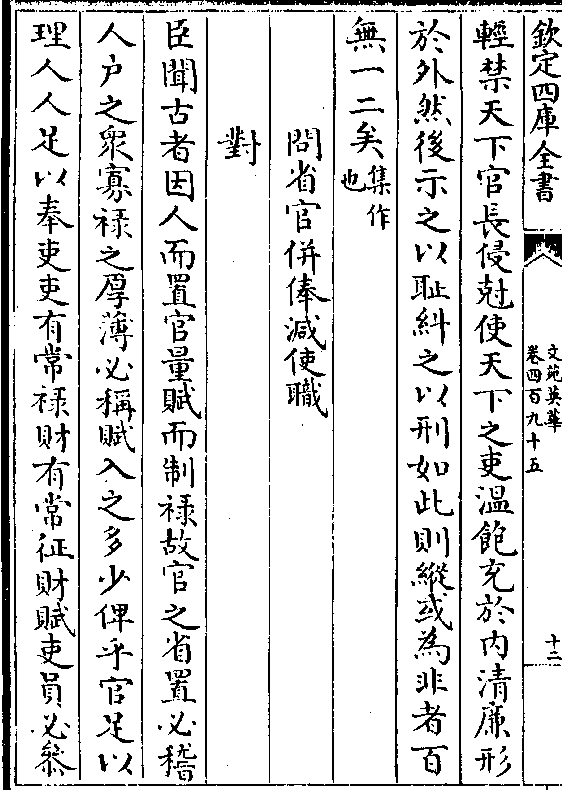 欽定四庫全書
文苑英華
卷四百九十五
十二
輕禁天下官長侵尅使天下之吏温飽充於内清廉形
於外然後示之以耻糾之以刑如此則縱或為非者百
無一二矣集作也
問省官併俸減使職
對
臣聞古者因人而置官量賦而制禄故官之省置必稽
人户之衆寡禄之厚薄必稱賦入之多少俾乎官足以
理人人足以奉吏吏有常禄財有常征財賦吏員必叅